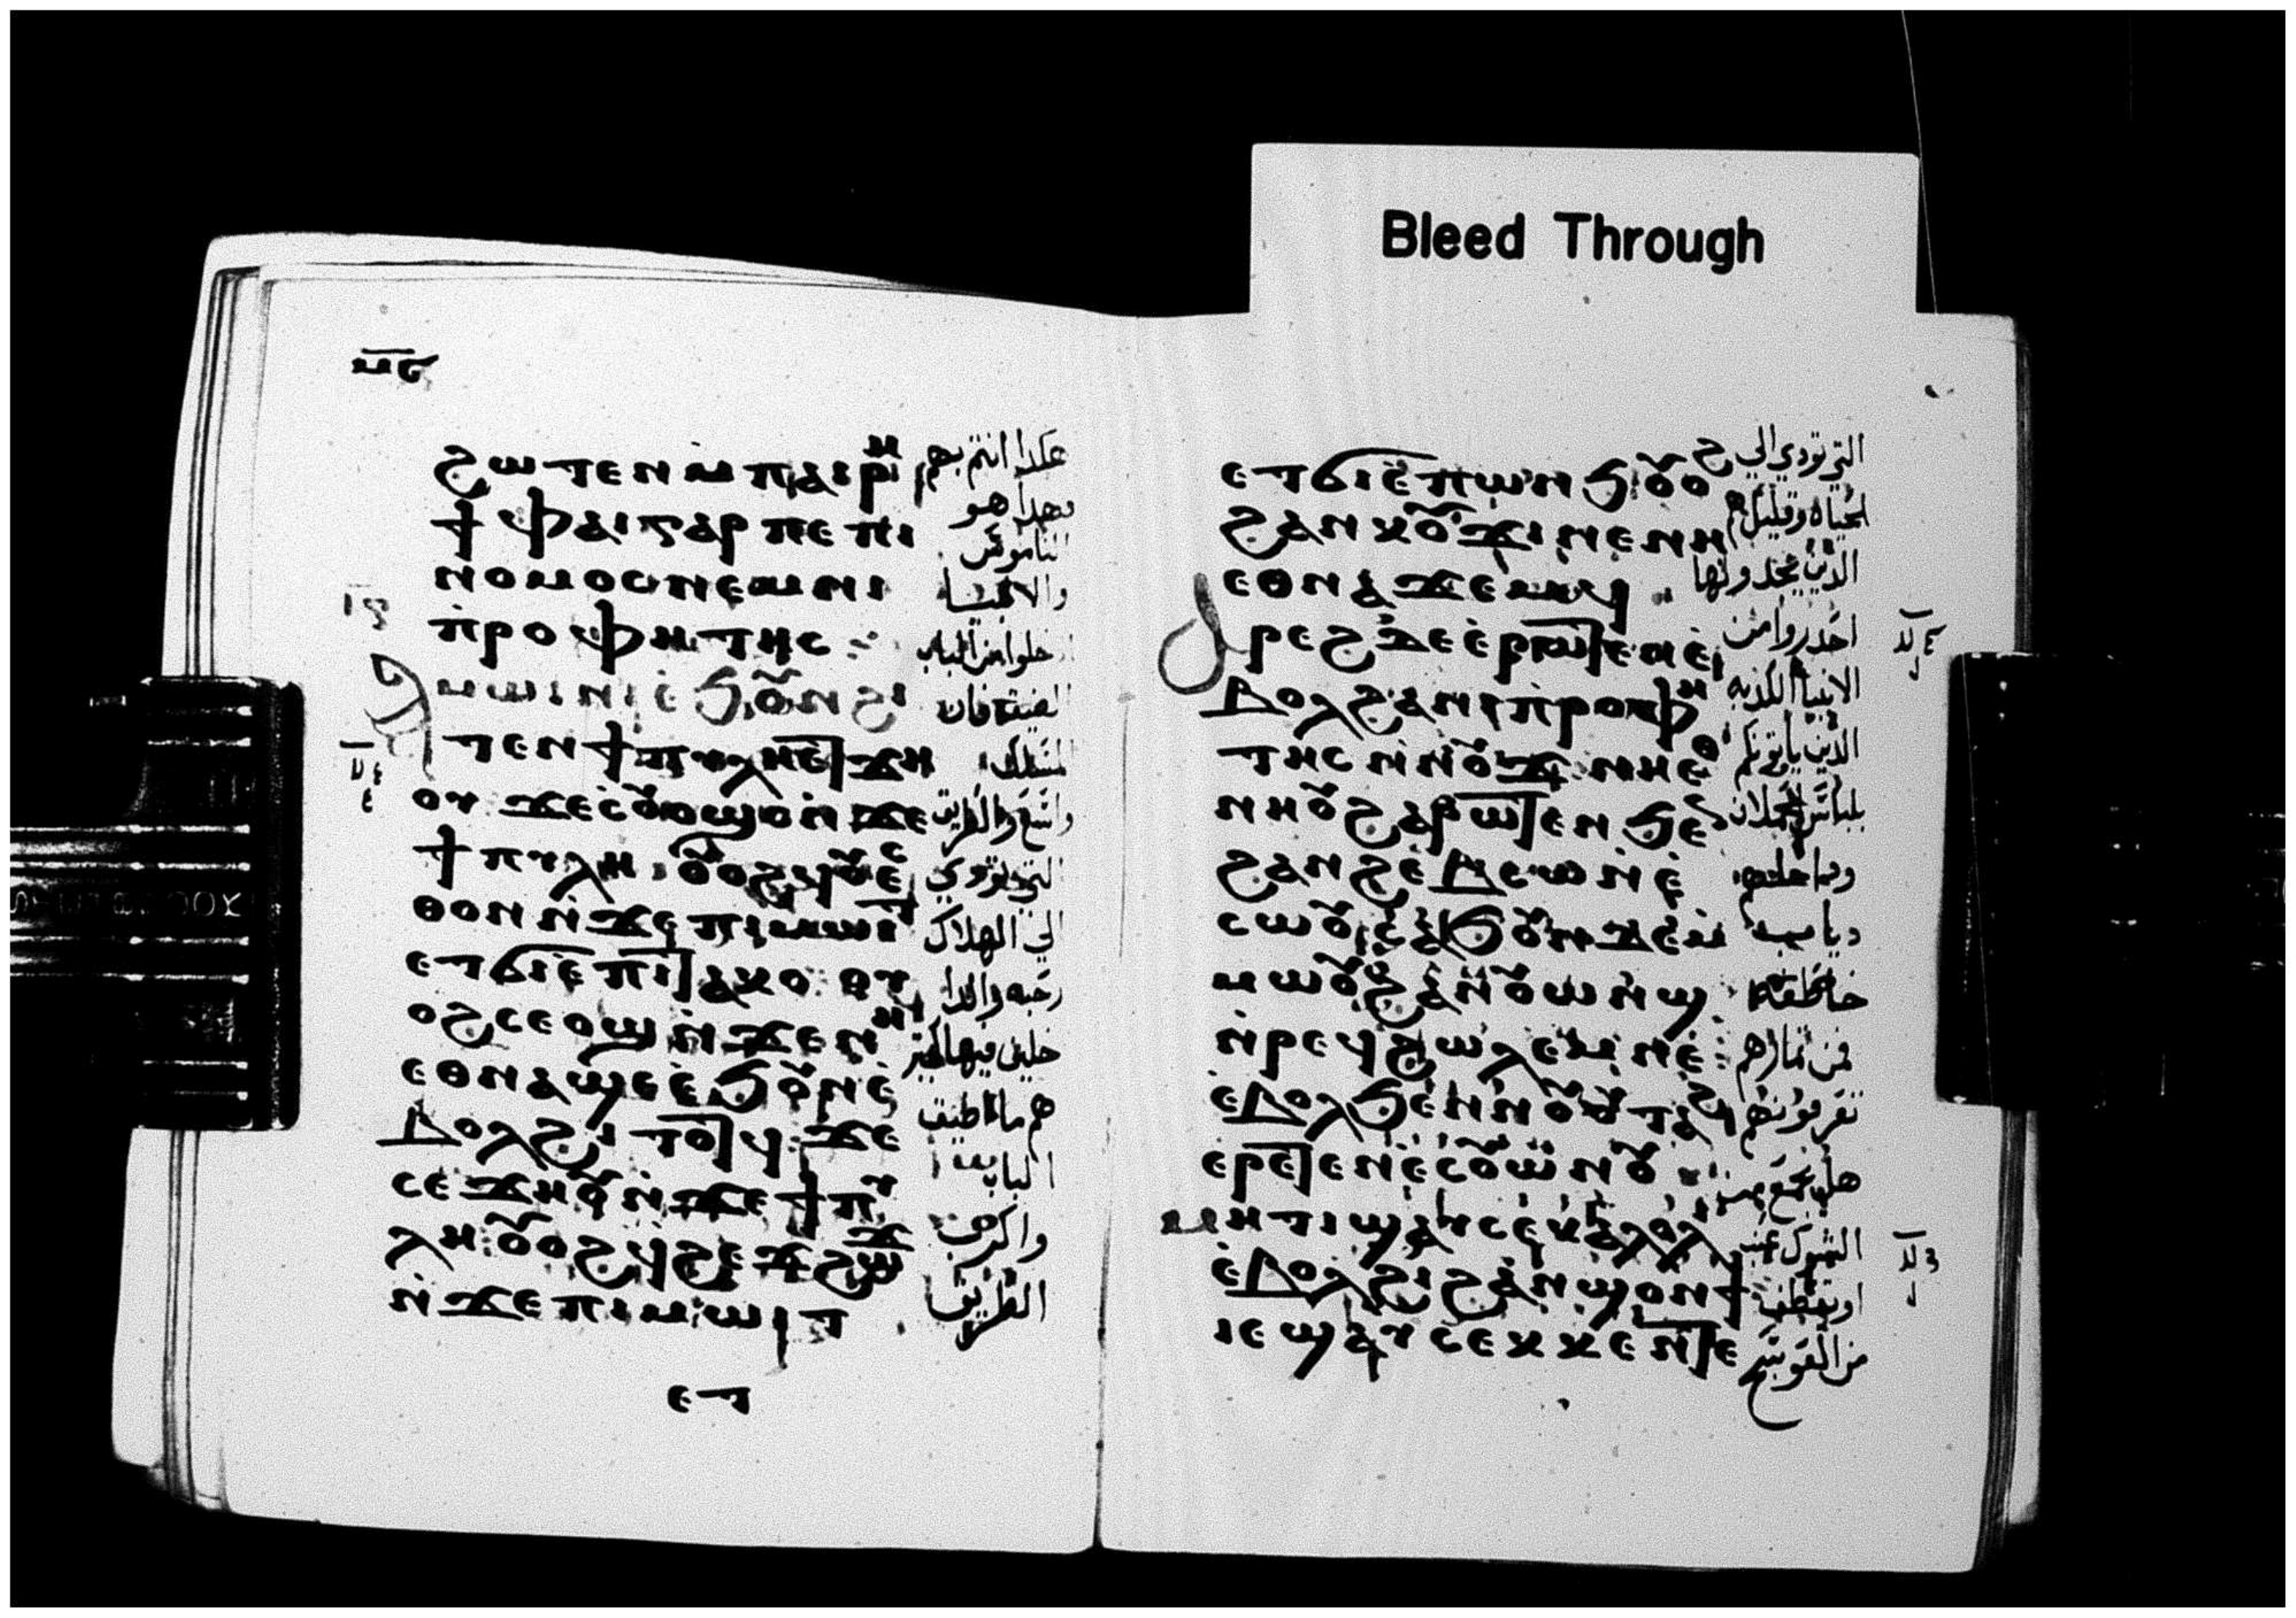 ⲙⲋ
ϩⲱⲧⲉⲛ ⲙⲡⲁⲓⲣⲏ
ϯ ⲫⲁⲓ ⲅⲁⲣ ⲡⲉ ⲡⲓ
ⲛⲟⲙⲟⲥ ⲛⲉⲙ ⲛⲓ
ⲡ̀ⲣⲟⲫⲏⲧⲏⲥ
ⲁⲙⲱⲓⲛⲓ ⲉ̀ϧⲟⲩⲛ ϩⲓ
ⲧⲉⲛ ϯⲡⲩⲗⲏ ⲉⲧϫⲏ
ⲟⲩ ϫⲉ ⲥ̀ⲟⲩⲟϣⲟⲛ ⲛ̀ϫⲉ
ϯⲡⲩⲗⲏ ⲟⲩⲟϩ ϥⲟⲩⲉⲥ
ⲑⲟⲛ ⲛ̀ϫⲉ ⲡⲓⲙⲱⲓⲧ
ⲉⲧϭⲓ ⲉ̀ⲡⲧⲁⲕⲟ ⲟⲩ
ⲟϩ ⲥⲉⲟϣ ⲛ̀ϫⲉ ⲛⲏ
ⲉⲑⲛⲁϣⲉ ⲉ̀ϧⲟⲩⲛ ⲉ̀
ⲃⲟⲗ ϩⲓⲧⲟⲧϥ ϫⲉ
ⲥⲉϫⲏⲟⲩ ⲛ̀ϫⲉ ϯⲡⲩ
ⲗⲏ ⲟⲩⲟϩ ϥϩⲉϫϩⲱϫ
ⲛ̀ϫⲉ ⲡⲓⲙⲱⲓⲧ
ⲉⲧ
هكدا انتم بهم
فهدا هو
الناموس
والانبيا
ادخلوا من الباب
الضيقة فان
المسلك
واسع والطريق
التي تودي
الي الهلاك
رحبه والدا
خلين فيها كثير
هم ما اضيق
الباب
واكرب
الطريق
ⲉⲧϭⲓ ⲉ̀ⲡⲱⲛϧ ⲟⲩⲟ
ϩⲁⲛⲕⲟⲩϫⲓ ⲛⲉ ⲛⲏ
ⲉⲑⲛⲁϫⲉⲙϥ
ⲁⲣⲉϩ ϫⲉ ⲉ̀ⲣⲱⲧⲉⲛ ⲉ̀
ⲃⲟⲗ ϩⲁ ⲛⲓⲡ̀ⲣⲟⲫⲏ
ⲧⲏⲥ ⲛ̀ⲛⲟⲩϫ ⲛⲏ ⲉⲑ
ⲛⲏⲟⲩ ϩⲁⲣⲱⲧⲉⲛ ϧⲉⲛ
ϩⲁⲛϩⲉⲃⲥⲱ ⲛ̀ⲉ̀
ⲥⲱⲟⲩ ⲥⲁϧⲟⲩⲛ ϫⲉ ⲙ̀
ⲙⲱⲟⲩ ϩⲁⲛⲟⲩⲱⲛϣ
ⲛ̀ⲣⲉϥϩⲱⲗⲉⲙ ⲛⲉ
ⲉ̀ⲃⲟⲗ ϧⲉⲛ ⲛⲟⲩⲟⲩⲧⲁϩ
ⲉⲣⲉⲧⲉⲛⲉ̀ⲥⲟⲩⲱⲛⲟⲩ
ⲙⲏⲧⲓ ϣⲁⲩⲥⲉⲕ ⲁⲗⲟⲗⲓ
ⲉ̀ⲃⲟⲗ ϩⲓ ϩⲁⲛϣⲟⲛϯ
ⲓⲉ ϣⲁⲩⲥⲉⲕ ⲕⲉⲛⲧⲉ
التي تودي الي
الحياه وقليل هم
الدين يجدونها
احذروا من
الانبيا الكدبه
الدين ياتونكم
بلباس الحملان
وداخلهم
دياب
خاطفه
من ثمارهم
تعرفونهم
هل يجمع من
الشوك عنب
او يقطف
من العوسج
Bleed Through